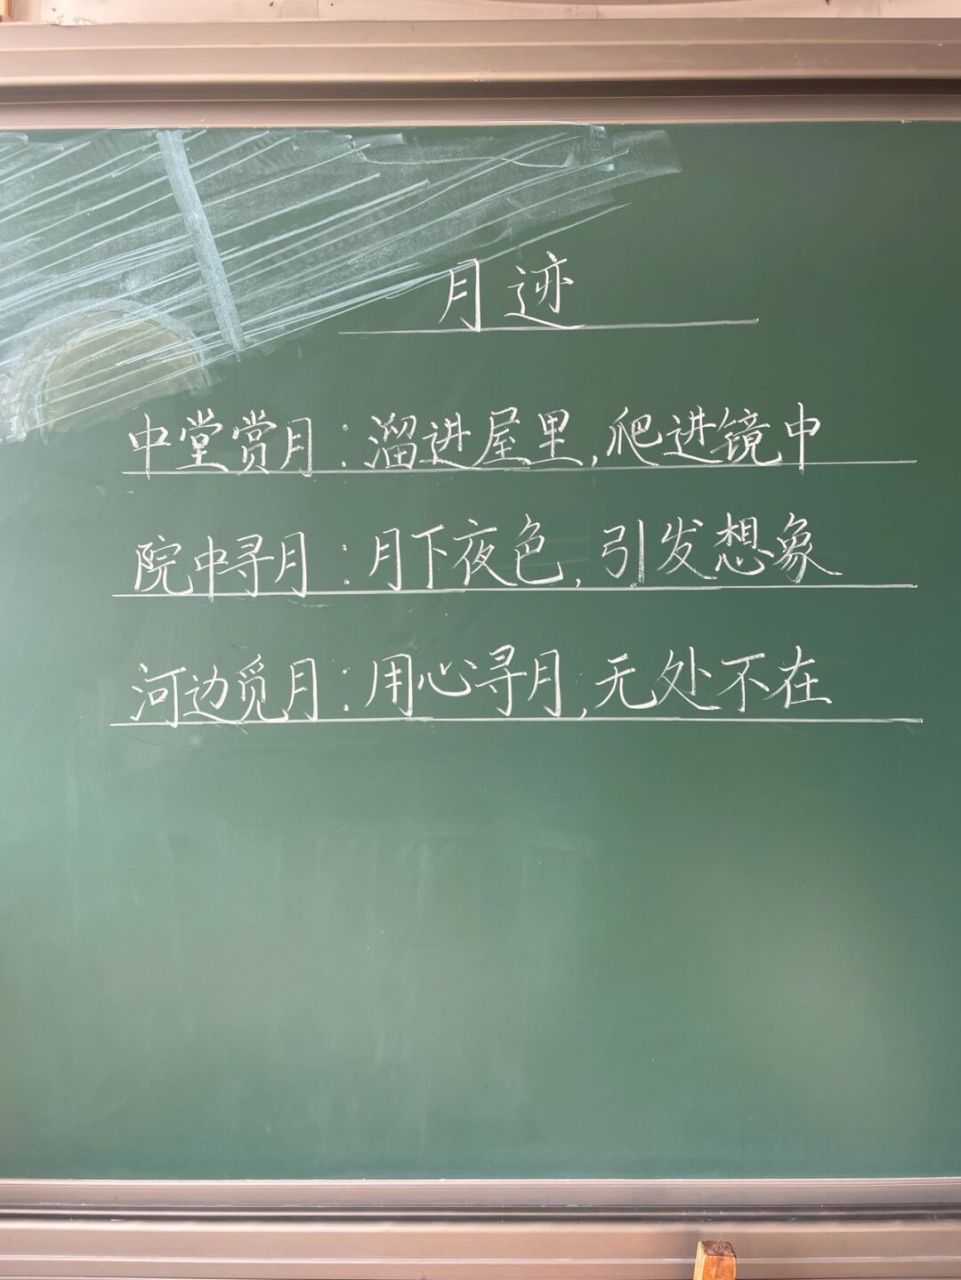 月迹
中堂赏月:溜进屋里,爬进镜中
院中寻月:月下夜色,引发想象
河边觅月:用心寻月,无处不在